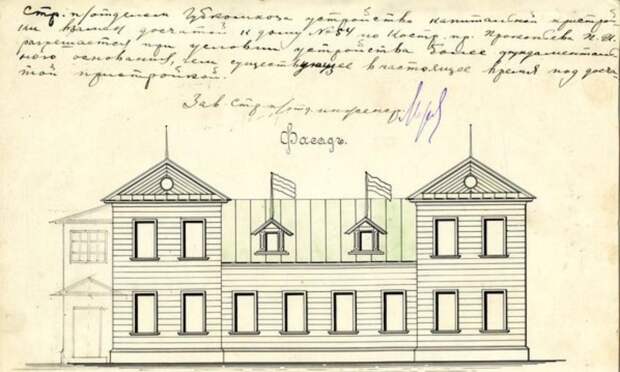 Стр. п/отделом Губкомхоза устройство капитальной пристрой-
ки взамен досчатой к дому № 84 по Костр. пр. Прокопьева П. И.
разрешается при условии устройства более фундаменталь-
ного основания, чем существующее в настоящее время под досча-
той пристройкой.
Зав. Стр. п/отд. инженер
Фасадъ.